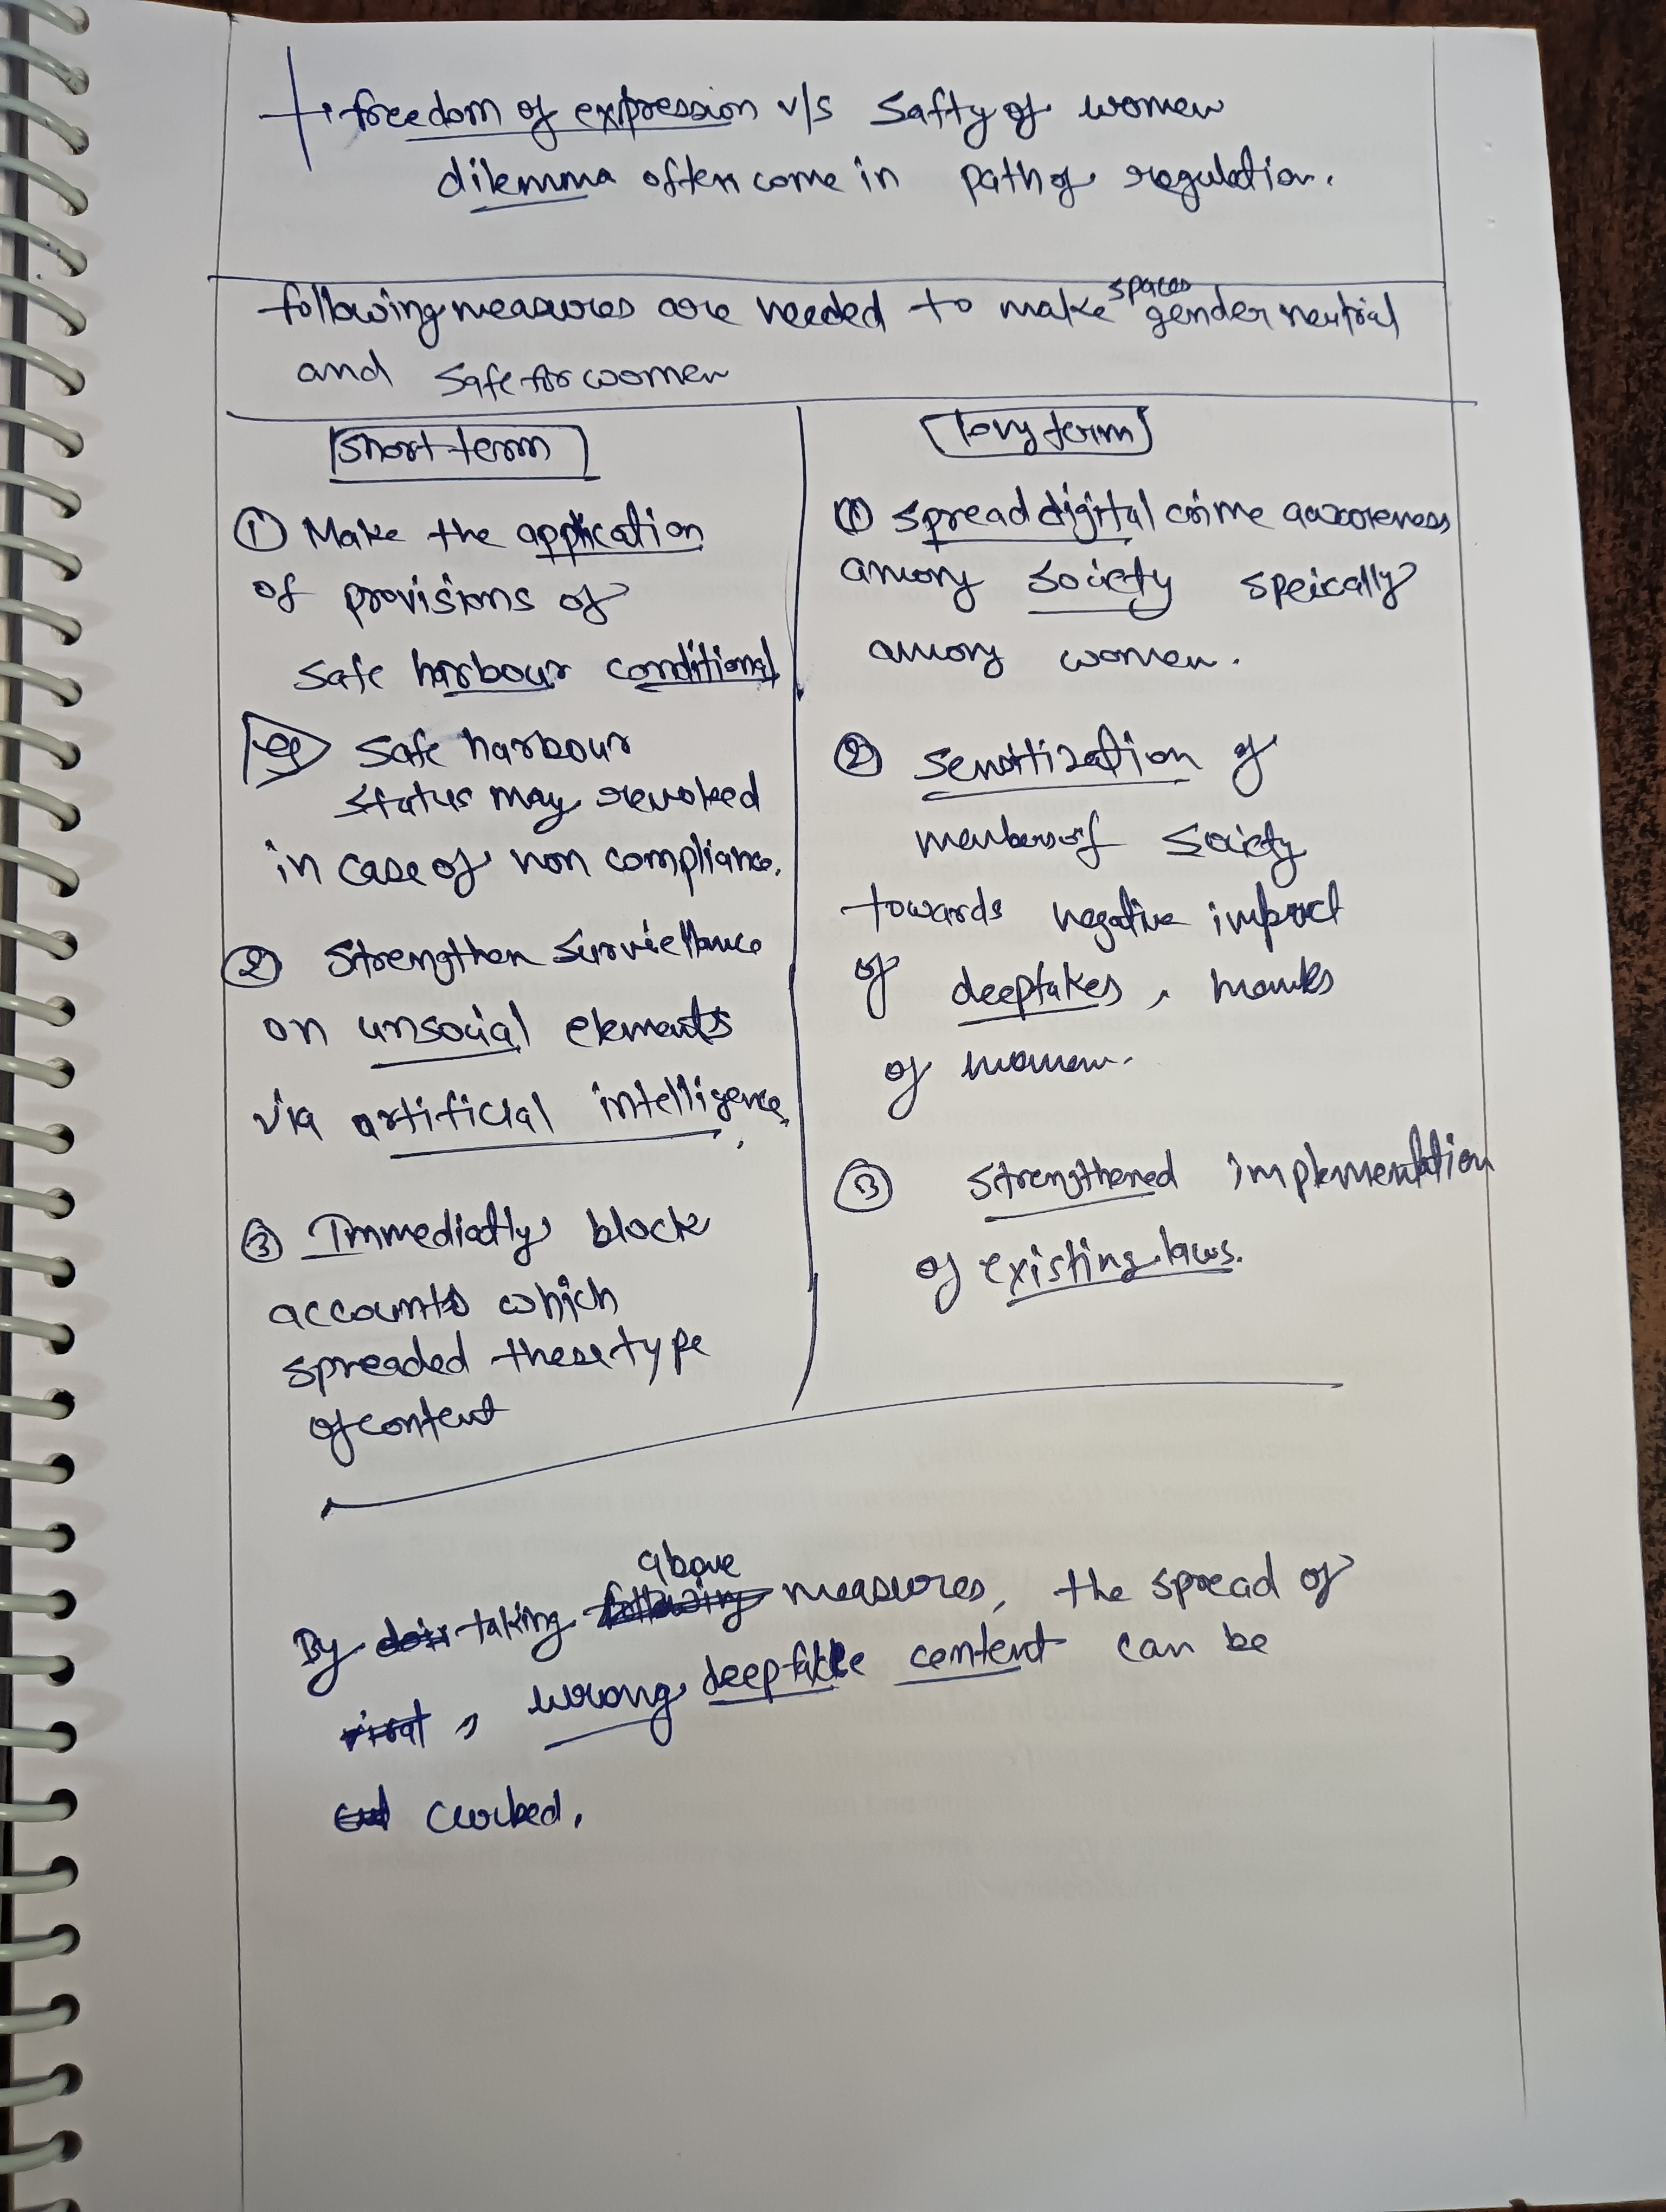 freedom of expression v/s Safty of women
dilemma often come in path of regulation.
spaces
following measures are needed to make gender neutral
and safe for women
Short term
① Make the application
of provisions of
safe harbour conditional
eg safe harbour
status may revoked
in case of non compliance.
② Strengthen Surviellance
on unsocial elements
via artificial intelligence,
③ Immediatly block
accounts which
spreaded these type
of content
long term
① spread digital crime awareness
among society speically
among women.
② Sensitization of
members of society
towards negative impact
of deepfakes,
of women.
③ Strengthened implementation
of existing laws.
above
By taking following measures, the spread of
, wrong deepfake content can be
curbed.